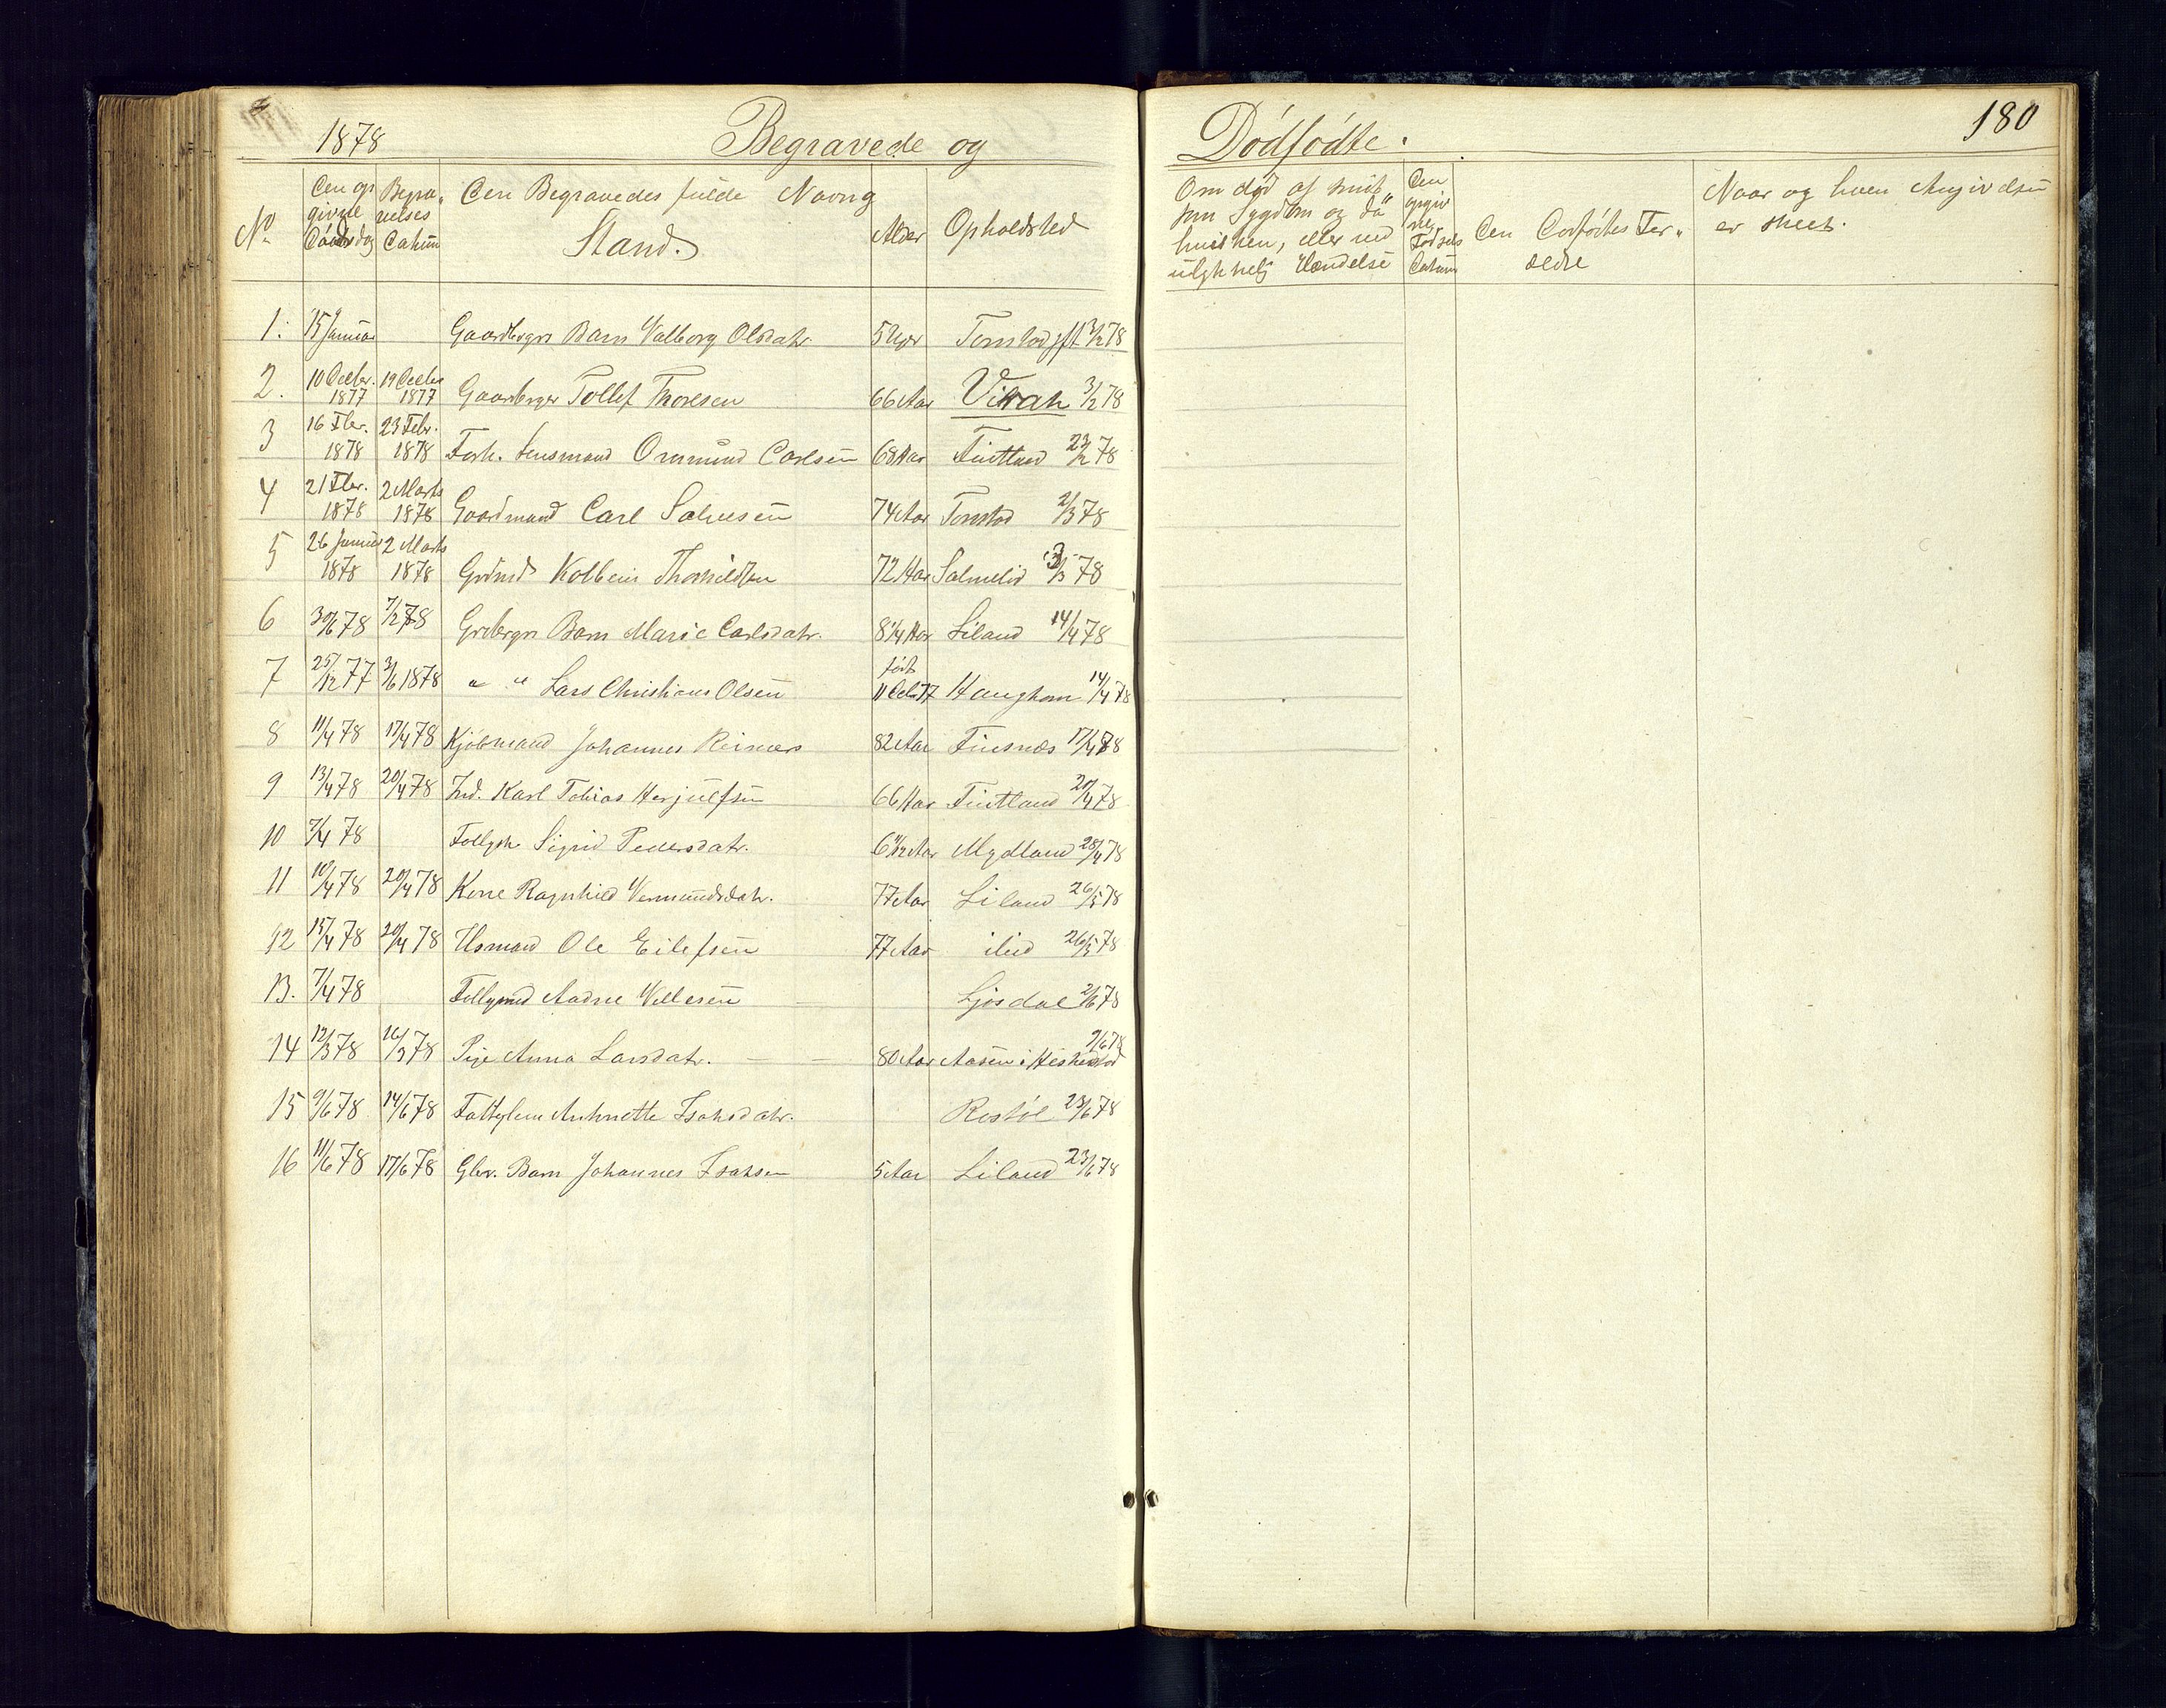 1878 Begravede og
Dödfödte. 180
No Den op givne Dödsdag Begra„ velses Datum Den Begravedes fulde Navn og Stand. Alder Opholdsted
Om död af Sygdom og da hvilken, eller ved ulykkelig Hændelse Den opgiv Födsels Datum Den Dödfödtes For„ ældre Naar og hven Angivelsen er skeet.
1. 15 Januar Gaardbrgrs Barn Valborg Olsdatr. 5 Uger Tonstad 3/2 78
2. 10 Decbr. 1877 19 Decbr 1877 Gaardbrger Tollef Thoresen 66 Aar Virak 3/2 78
3 16 Fbr. 1878 23 Febr. 1878 Forh. Lensmand Ommund Carlsen 68 Aar Fintland 23/2 78
4 21 Fbr. 1878 2 Marts 1878 Gaardmand Carl Salvesen 74 Aar Tonstad 2/3 78
5 26 Januar 1878 2 Marts 1878 Grdmd Kolbein Thorkildsen 72 Aar Salmelid 3/3 78
6 30/1 78 7/2 78 Grdbrgrs Barn Marie Carlsdatr. 8 1/4 Aar Liland 14/4 78
7 25/12 77 3/1 1878 " " Lars Christians Olsen födt 11 Octb 77 Haughom 14/4 78
8 11/4 78 17/4 78 Kjöbmand Johannes Reimers 82 Aar Finsnæs 17/4 78
9 13/4 78 20/4 78 Ind. Karl Tobias Herjulfsen 66 Aar Fintland 20/4 78
10 7/4 78 Sigrid Pedersdatr. 6 1/2 Aar Mydland 28/4 78
11 10/4 78 20/4 78 Kone Ragnhild Vermundsdatr. 77 Aar Liland 26/5 78
12 15/4 78 20/4 78 Husmand Ole Eilefsen 77 Aar ibid 26/5 78
13. 7/4 78 Aadne Villesen Ljosdal 2/6 78
14 12/3 78 16/3 78 Pige Anna Larsdatr. 80 Aar Aasen i Heskestad 9/6 78
15 9/6 78 14/6 78 Fattiglem Anthonette Isaksdatr. Restöl 23/6 78
16 11/6 78 17/6 78 Gbr. Barn Johannes Isaksen 5 Aar Liland 23/6 78